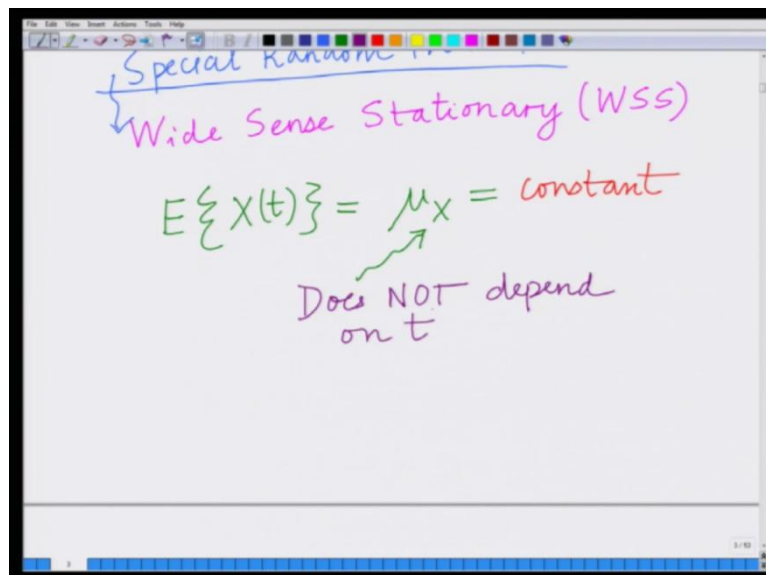 File Edit View Insert Actions Tools Help
Special Random
Wide Sense Stationary (WSS)
E{X(t)} = μX = constant
Does NOT depend
on t
3